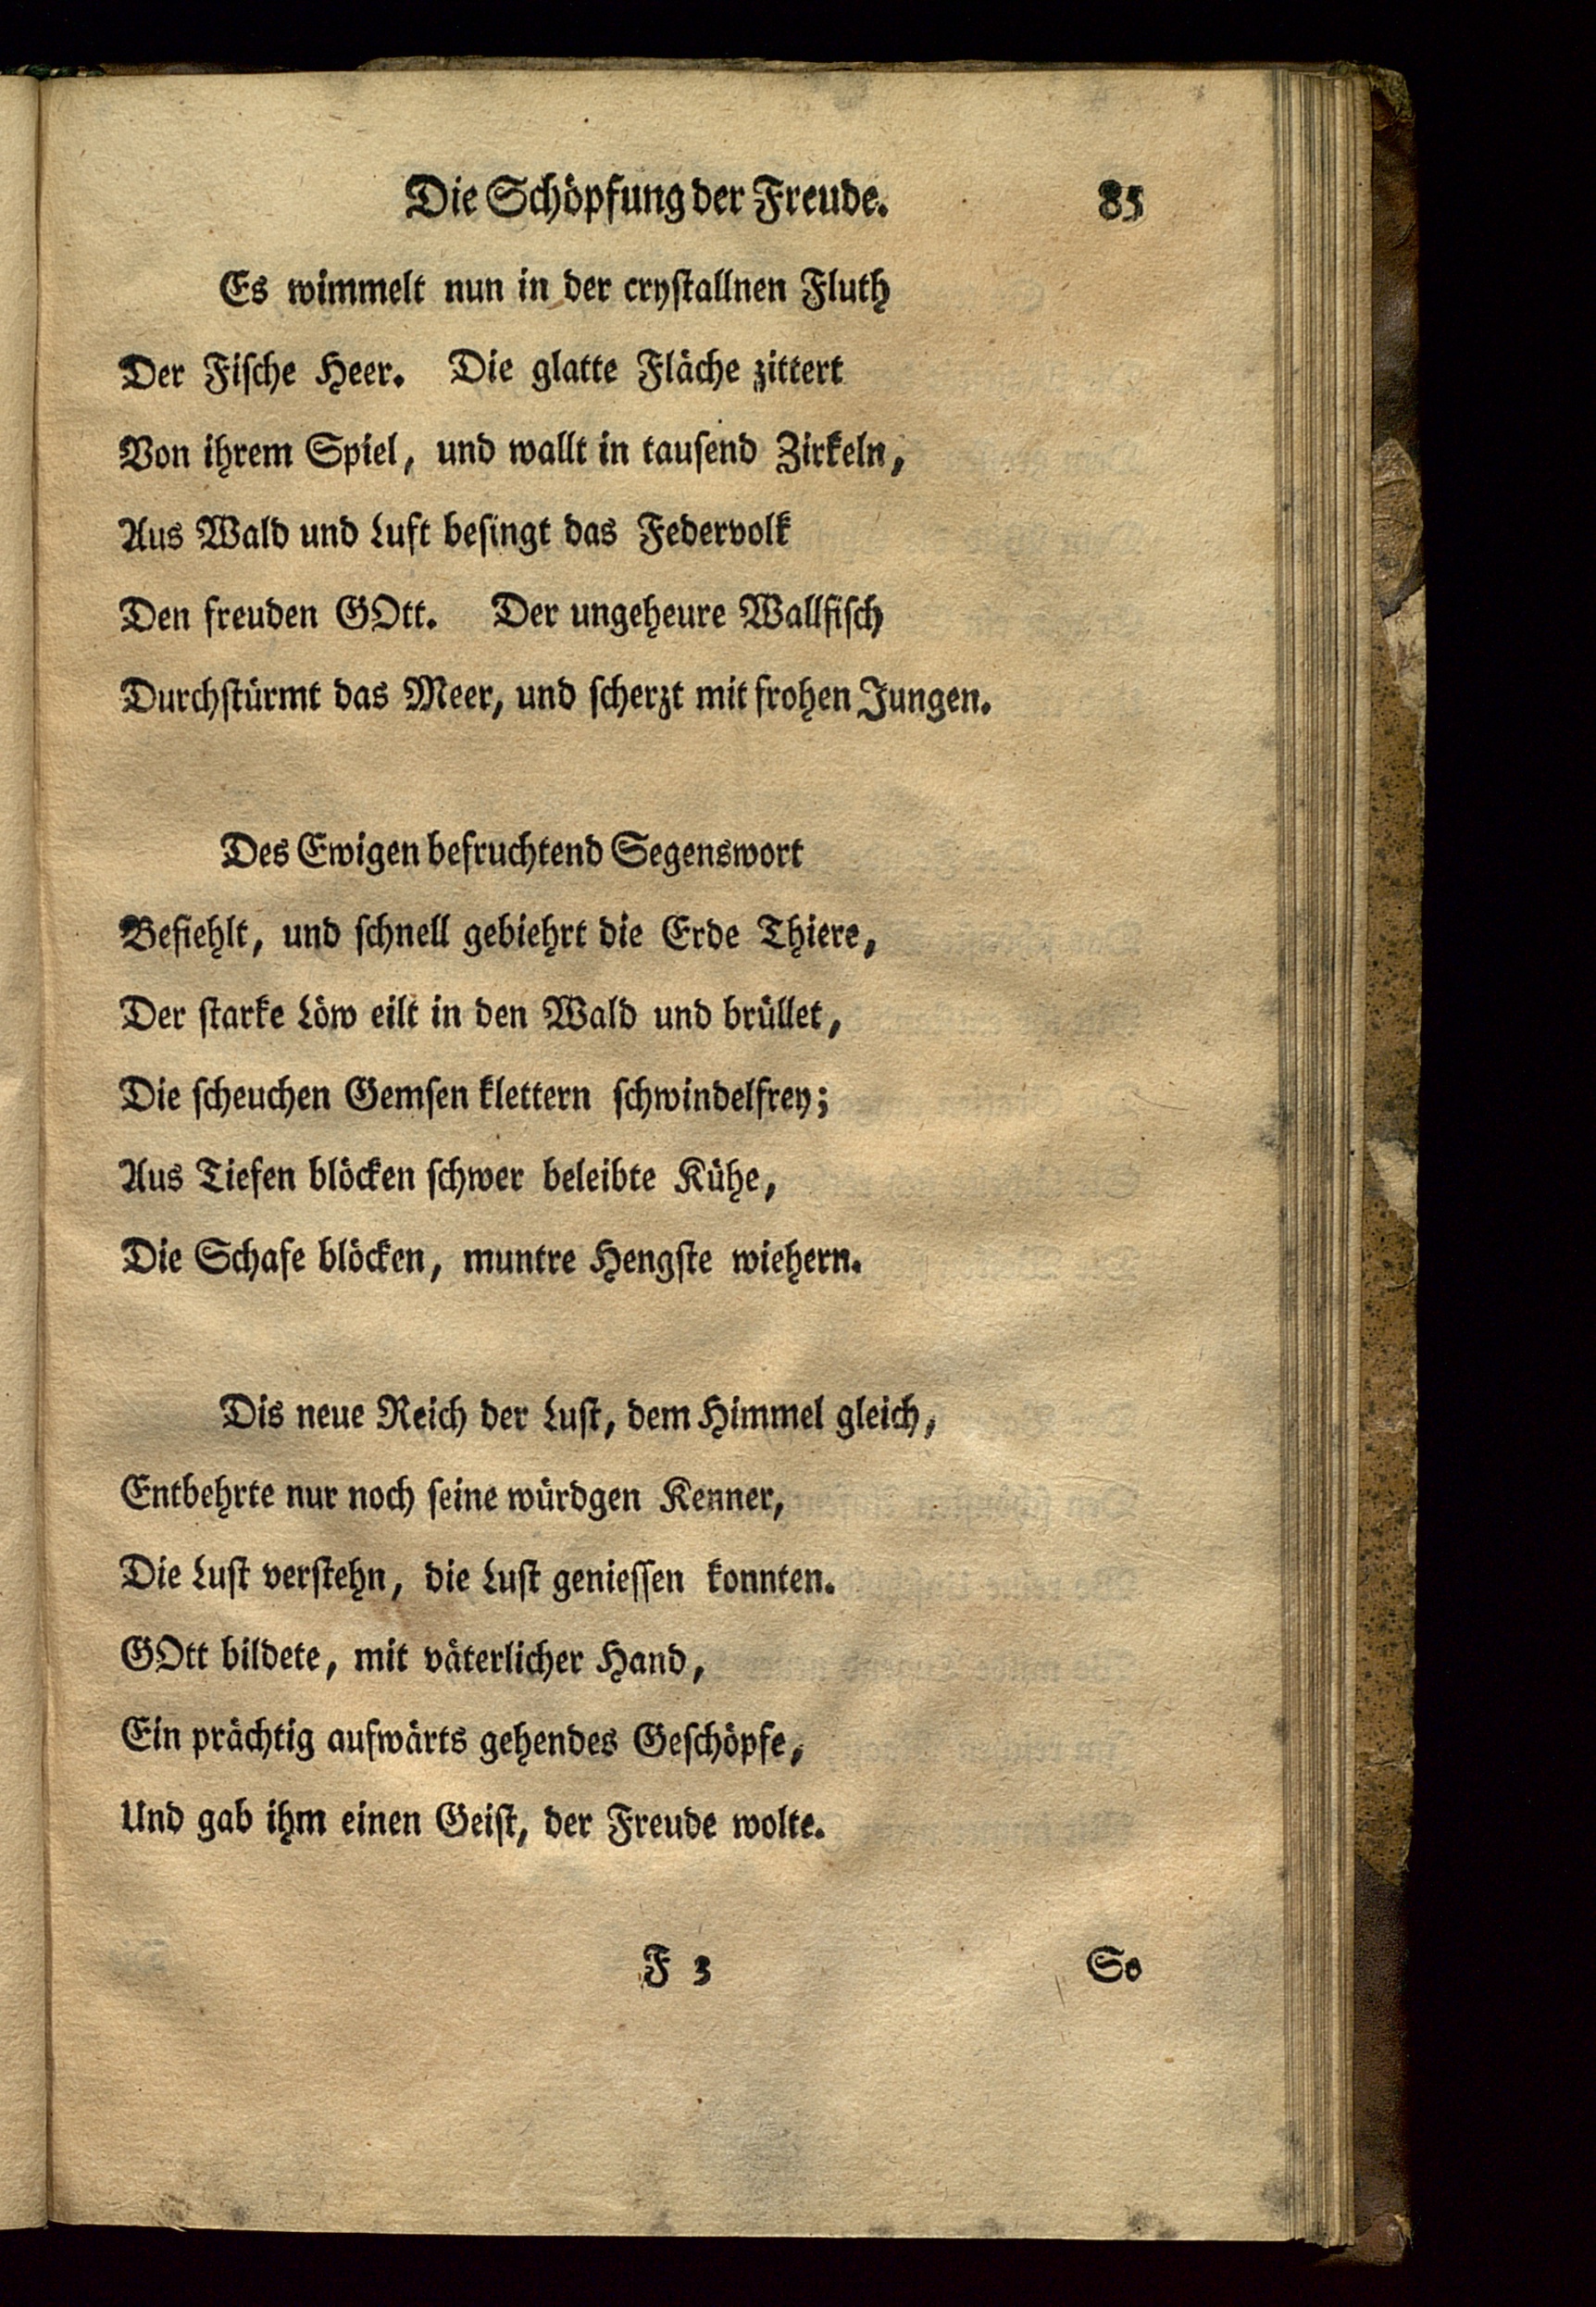 Die Schöpfung der Freude. 85
Es wimmelt nun in der crystallnen Fluth
Der Fische Heer. Die glatte Fläche zittert
Von ihrem Spiel, und wallt in tausend Zirkeln,
Aus Wald und Luft besingt das Federvolk
Den freuden GOtt. Der ungeheure Wallfisch
Durchstürmt das Meer, und scherzt mit frohen Jungen.
Des Ewigen befruchtend Segenswort
Befiehlt, und schnell gebiehrt die Erde Thiere,
Der starke Löw eilt in den Wald und brüllet,
Die scheuchen Gemsen klettern schwindelfrey;
Aus Tiefen blöcken schwer beleibte Kühe,
Die Schafe blöcken, muntre Hengste wiehern.
Dis neue Reich der Lust, dem Himmel gleich,
Entbehrte nur noch seine würdgen Kenner,
Die Lust verstehn, die Lust geniessen konnten.
GOtt bildete, mit väterlicher Hand,
Ein prächtig aufwärts gehendes Geschöpfe,
Und gab ihm einen Geist, der Freude wolte.
F 3 So